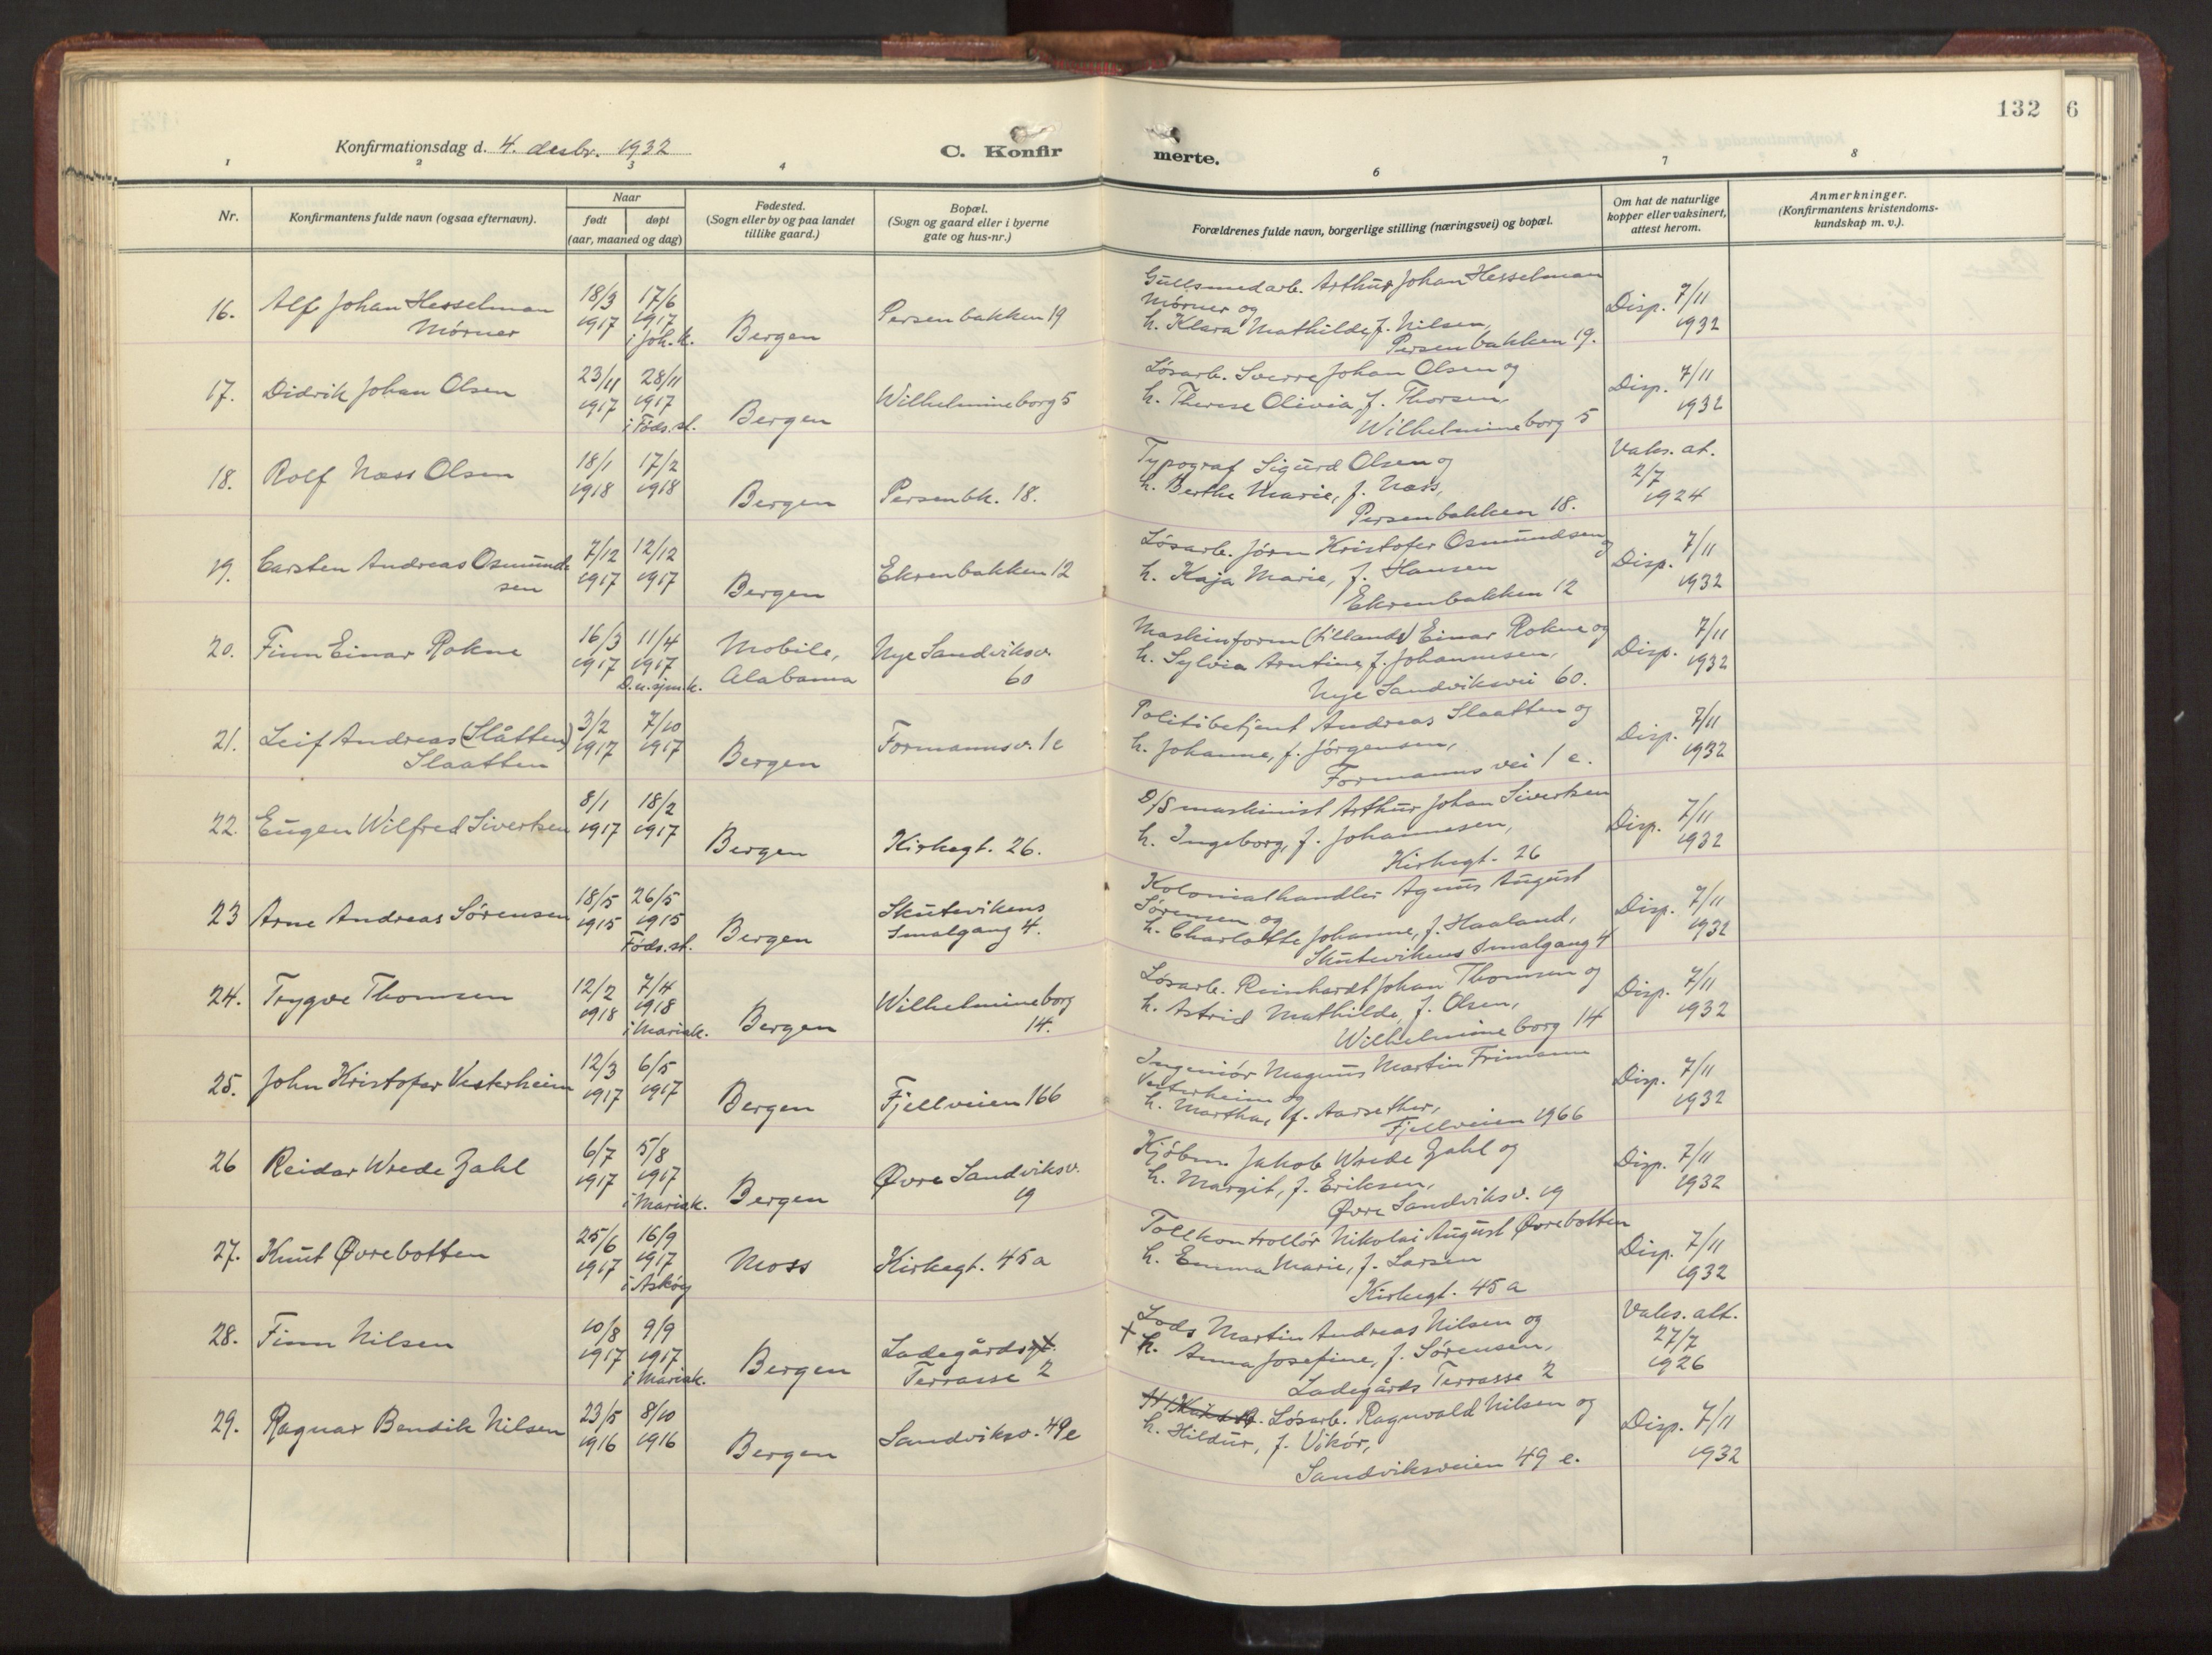 132
6
Konfirmationsdag d. 4. desbr. 1932
C. Konfir
merte.
1
2
3
4
6
7
8
Nr.
Konfirmantens fulde navn (ogsaa efternavn).
Naar
født
døpt
(aar, maaned og dag)
Fødested.
(Sogn eller by og paa landet
tillike gaard.)
Bopæl.
(Sogn og gaard eller i byerne
gate og hus-nr.)
Forældrenes fulde navn, borgerlige stilling (næringsvei) og bopæl.
Om hat de naturlige
kopper eller vaksinert,
attest herom.
Anmerkninger.
(Konfirmantens kristendoms-
kundskap m. v.).
16.
Alf Johan Hesselman
Mörner
18/3
1917
17/6
1917
i Joh.k.
Bergen
Persenbakken 19
Gullsmedarb. Arthur Johan Hesselman
Mörner og
h. Klara Mathilde, f. Nilsen,
Persenbakken 19.
Disp. 7/11
1932
17.
Didrik Johan Olsen
23/11
1917
28/11
1917
i Föds.st.
Bergen
Wilhelmineborg 5
Løsarb. Sverre Johan Olsen og
h. Therese Olivia, f. Thorsen,
Wilhelmineborg 5
Disp. 7/11
1932
18.
Rolf Næss Olsen
18/1
1918
17/2
1918
Bergen
Persenbk. 18.
Typograf Sigurd Olsen og
h. Berthe Marie, f. Næss,
Persenbakken 18.
Vaks. at.
2/7
1924
19.
Carsten Andreas Osmund
sen
7/12
1917
12/12
1917
Bergen
Ekrenbakken 12
Løsarb. Jörn Kristofer Osmundsen
og
h. Kaja Marie, f. Hansen
Ekrenbakken 12
Disp. 7/11
1932
20.
Finn Einar Rokne
16/3
1917
11/4
1917
D.n.sjm.k.
Mobile,
Alabama
Nye Sandviksv.
60
Maskinform (tillands) Einar Rokne og
h. Sylvia Arntine, f. Johannesen,
Nye Sandviksvei 60.
Disp. 7/11
1932
21.
Leif Andreas (Slåtten)
Slaatten
3/2
1917
7/10
1917
Bergen
Formannsv. 1e
Politibetjent Andreas Slaatten og
h. Johanne, f. Jörgensen,
Formanns vei 1 e.
Disp. 7/11
1932
22.
Eugen Wilfred Sivertsen
8/1
1917
18/2
1917
Bergen
Kirkegt. 26.
D/S maskinist Arthur Johan Sivertsen
h. Ingeborg, f. Johannesen,
Kirkegt. 26
Disp. 7/11
1932
23
Arne Andreas Sörensen
18/5
1915
26/5
1915
Föds.st.
Bergen
Skutevikens
Smalgang 4.
Kolonialhandler Agnus August
Sörensen og
h. Charlotte Johanne, f. Haaland,
Skutevikens Smalgang 4
Disp. 7/11
1932
24.
Trygve Thomsen
12/2
1918
7/4
1918
i Mariak.
Bergen
Wilhelmineborg
14.
Løsarb. Reinhardt Johan Thomsen og
h. Astrid Mathilde, f. Olsen,
Wilhelmineborg 14
Disp. 7/11
1932
25.
John Kristofer Vesterheim
12/3
1917
6/5
1917
Bergen
Fjellveien 166
Ingeniör Magnus Martin Frimann
Vesterheim og
h. Martha, f. Aarsether,
Fjellveien 1966
Disp. 7/11
1932
26
Reidar Wrede Zahl
6/7
1917
5/8
1917
i Mariak.
Bergen
Øvre Sandviksv.
19
Kjöbm. Jakob Wrede Zahl og
h. Margit, f. Eriksen,
Øvre Sandviksv. 19
Disp. 7/11
1932
27.
Knut Øvrebotten
25/6
1917
16/9
1917
i Asköy
Moss
Kirkegt. 45a
Tollkontrollör Nikolai August Øvrebotten
h. Emma Marie, f. Larsen
Kirkegt. 45a
Disp. 7/11
1932
28.
Finn Nilsen
10/8
1917
9/9
1917
i Mariak.
Bergen
Ladegårdsgt.
Terrasse 2
Lods Martin Andreas Nilsen og
+ h. Anna Josefine, f. Sörensen,
Ladegårds Terrasse 2
Vaks. att.
27/7
1926
29.
Ragnar Bendik Nilsen
23/5
1916
8/10
1916
Bergen
Sandviksv. 49e
Løsarb. Ragnvald Nilsen og
h. Hildur, f. Vikör,
Sandviksveien 49 e.
Disp. 7/11
1932